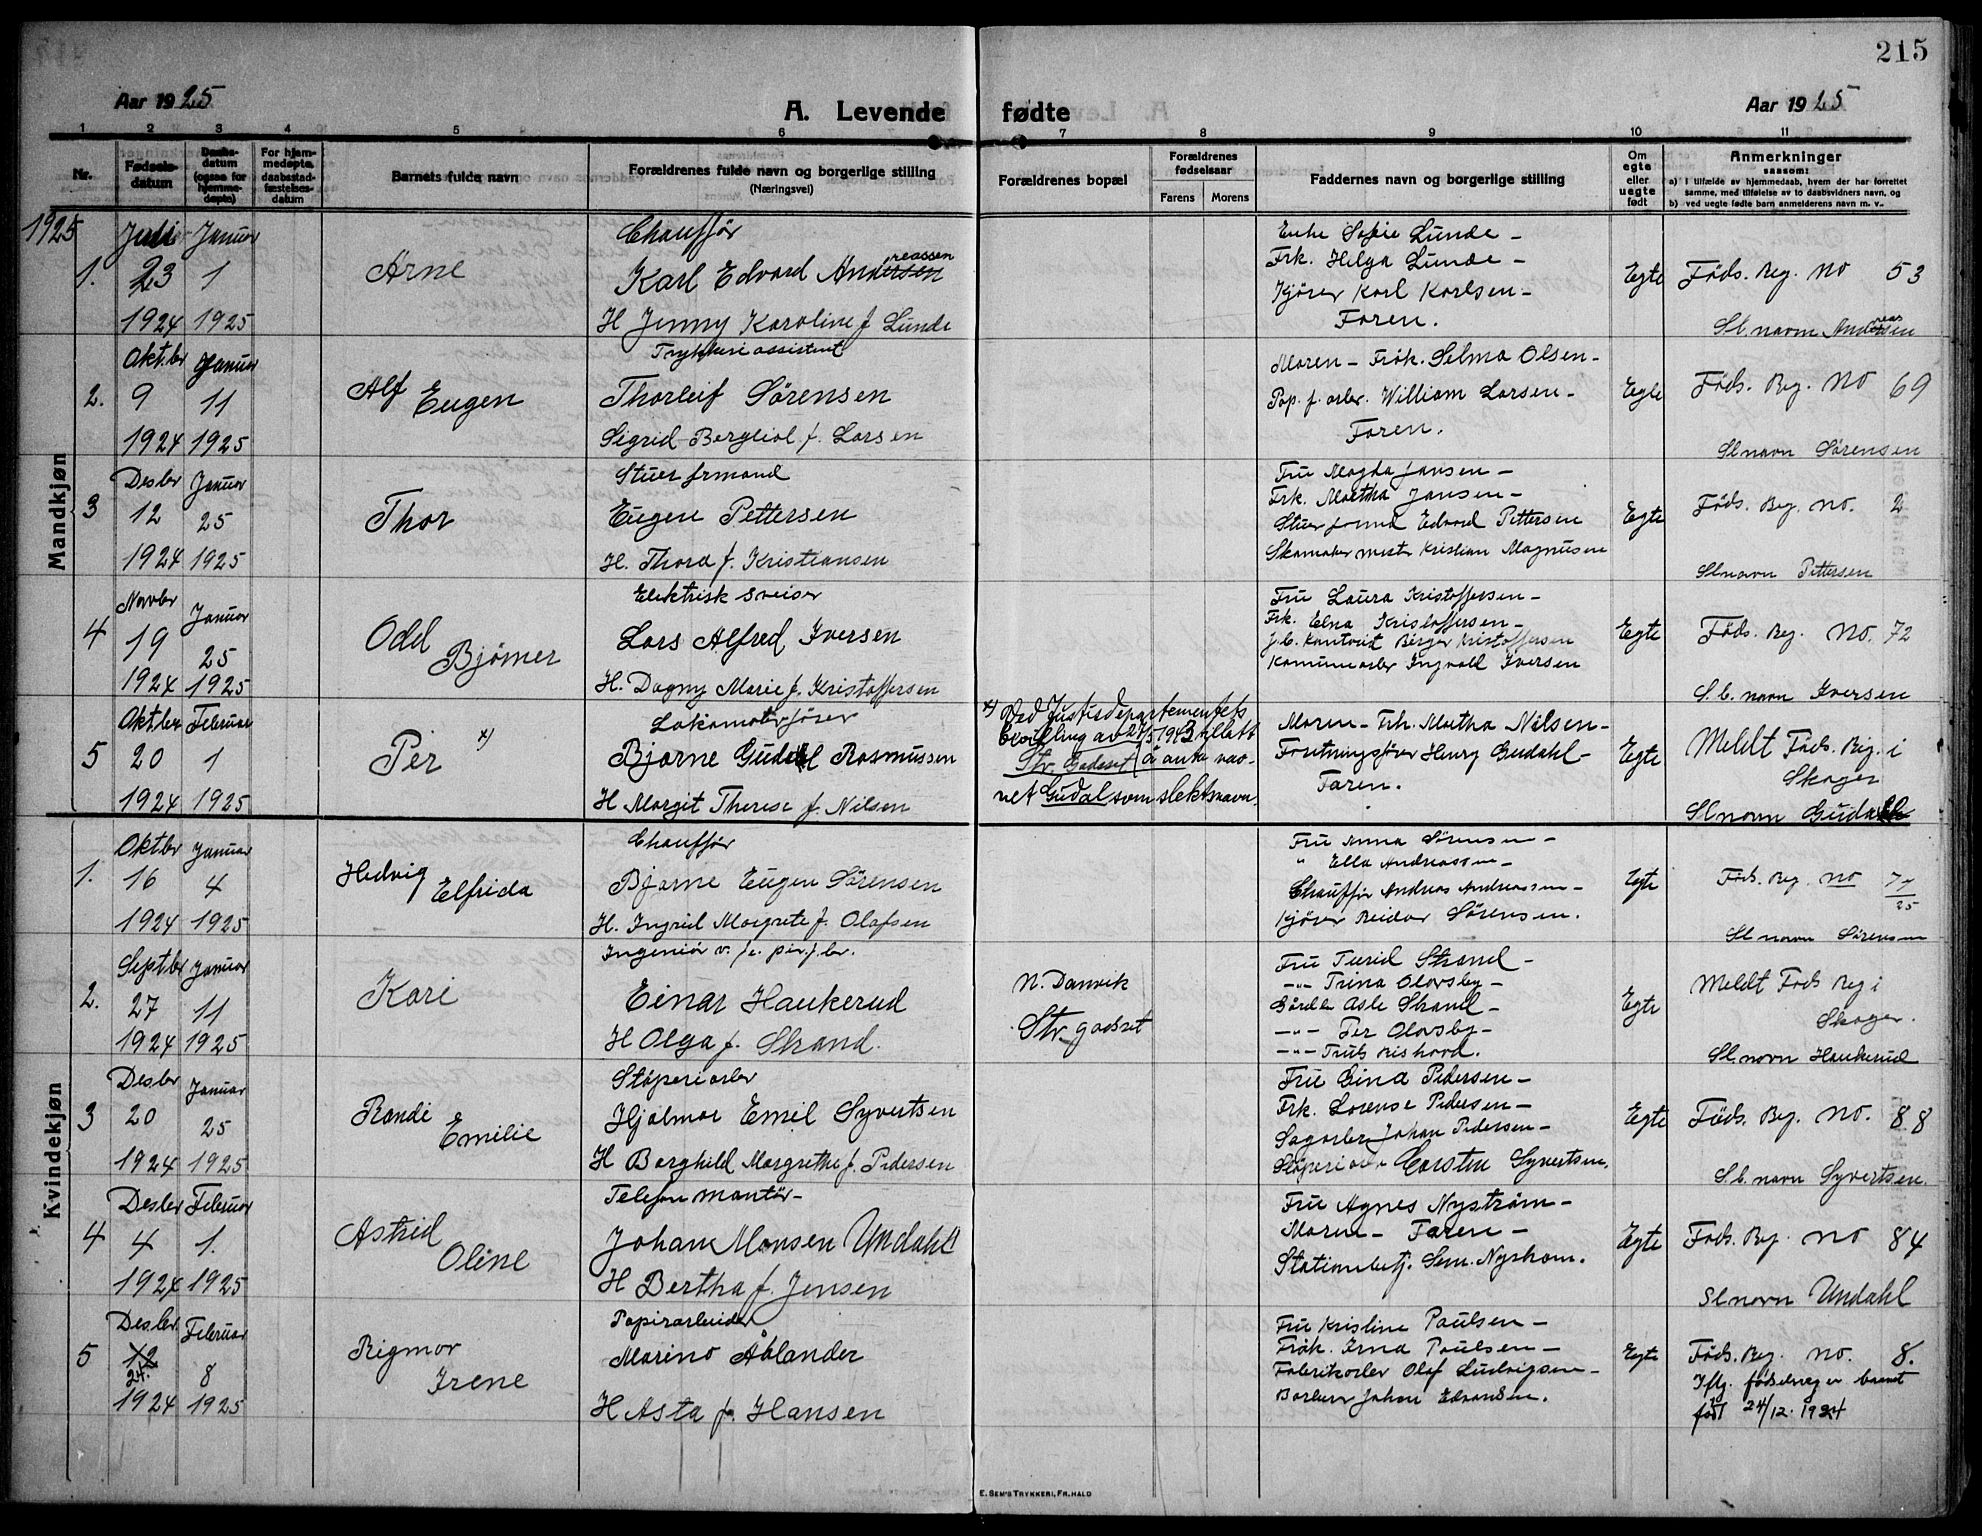 215
Aar 1925
A. Levende fødte
Aar 1925
1 2 3 4 5 6 7 8 9 10 11
Nr.
Fødsels-
datum
Daabs-
datum
(ogsaa for
hjemme-
døpte)
For hjem-
medøpte
daabsstad-
fæstelses-
datum
Barnets fulde navn
Forældrenes fulde navn og borgerlige stilling
(Næringsvei)
Forældrenes bopæl
Forældrenes
fødselsaar
Farens Morens
Faddernes navn og borgerlige stilling
Om
egte
eller
uegte
født
Anmerkninger
saasom:
a) I tilfælde av hjemmedaab, hvem der har forrettet
samme, med tilføielse av to daabsvidners navn, og
b) ved uegte fødte barn anmelderens navn m. v.
Mandkjøn
1925 Juli Januar Chauffør Enke Sofie Lunde –
1. 23 1 Arne Karl Edvard Andersen reassen Frk. Helga Lunde – Egte Føds. Reg. No 53
Kjører Karl Karlsen –
1924 1925 H Jenny Karoline f Lunde Faren. Sl. navn Andersen reas
Oktbr Januar Trykkeriassistent Moren – Frøk. Selma Olsen –
2. 9 11 Alf Eugen Thorleif Sørensen Pap. f. arbr. William Larsen – Egte Føds. Reg. No 69
1924 1925 Sigrid Bergliot f. Larsen Faren. Slnavn Sørensen
Desbr Januar Stuerformand Fru Magda Jansen –
3 12 25 Thor Eugen Pettersen Frk. Martha Jansen – Egte Føds. Reg. No. 2
Stuerformd Edvard Pettersen
1924 1925 H. Thora f. Kristiansen Skomaker mester Kristian Magnusen Slnavn Pettersen
Novbr Januar Elektrisk sveiser Fru Laura Kristoffersen –
4 19 25 Odd Bjørner Lars Alfred Iversen Frk. Elna Kristoffersen – Egte Føds. Reg. No. 72
J.b. kontorist Birger Kristoffersen
Komunearbr Ingvald Iversen
1924 1925 H. Dagny Marie f. Kristoffersen S.b. navn Iversen
Oktbr Februar Lokomotivfører x) Ved Justisdepartementets Moren – Frk. Martha Nilsen –
5 20 1 Per x) Bjarne Gudal Rasmussen bevilling av 27/5 1943 tillatt Forretningsfører Henry Gudahl – Egte Meldt Føds. Reg. i
Str. Godset å anta nav- Faren. Skoger
1924 1925 H Margit Therese f. Nilsen net Gudal som slektsnavn. Slnavn Gudahl
Kvindekjøn
Oktbr Januar Chauffør Fru Anna Sørensen –
1. 16 4 Hedvig Elfrida Bjarne Eugen Sørensen " Ella Andreassen – Egte Føds. Reg. no 77/25
Chauffør Andreas Andreassen –
1924 1925 H. Ingrid Margrete f. Olafsen Kjører Reidar Sørensen. Sl navn Sørensen
Septbr Januar Ingeniør Fru Turid Strand –
2. 27 11 Kari Einar Haukerud N. Danvik –"– Trina Olovsby – Egte Meldt Føds Reg i
Str. godset Gårdbr Asle Strand – Skoger.
–"– Per Olovsby –
1924 1925 H Olga f. Strand. –"– Truls Rishovd. Sl navn Haukerud
Desbr Januar Støperiarbr Fru Gina Pedersen –
3 20 25 Randi Emilie Hjalmar Emil Syvertsen Frk. Lorense Pedersen – Egte Føds. Reg. No. 88
Sagarbr Johan Pedersen –
1924 1925 H Borghild Margrethe f. Pedersen Støperiarb Carsten Syvertsen. S.b. navn Syvertsen
Desbr Februar Telefonmontør – Fru Agnes Nystrøm –
4 4 1. Astrid Oline Johan Monsen Undahl Moren – Faren – Egte Føds. Reg. No 84
Stationsbetj. Sem. Nystrøm.
1924 1925 H Bertha f. Jensen Slnavn Undahl
Desbr Februar Papirarbeider Fru Kristine Paulsen –
5 12 24. 8 Rigmor Irene Marino Åblander Frøk. Erna Paulsen – Egte Føds. Reg. No. 8.
Fabrikarbr Olaf Ludvigsen – Iflg. fødselsreg er barnet
1924 1925 H Asta f. Hansen Johan Edvardsen. født 24/12. 1924
E. SEM'S TRYKKERI, FR.HALD